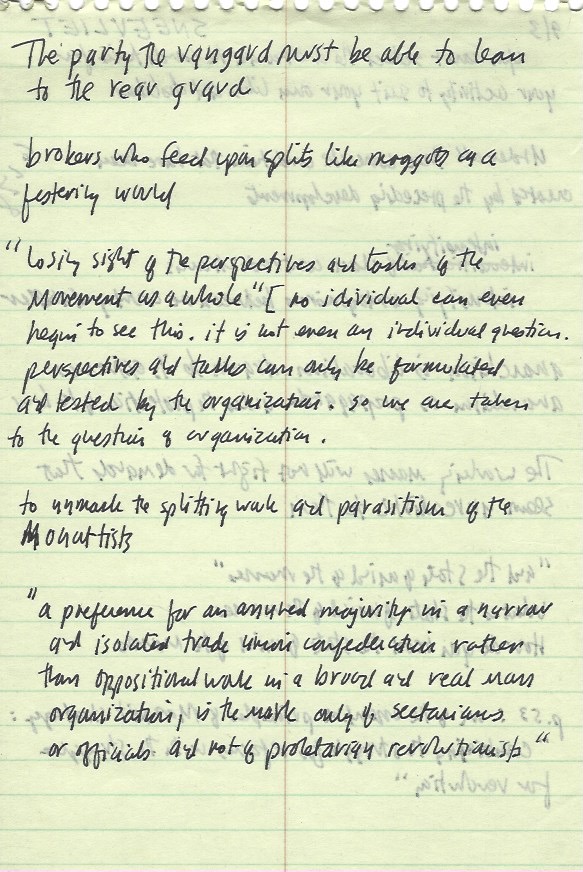 The party the vangard must be able to lean
to the rear guard
brokers who feed upon splits like maggots on a
festering would
"losing sight of the perspectives and tasks of the
Movement as a whole" [ no idividual can even
begin to see this. it is not even an individual question.
perspectives and tasks can only be formulated
and tested by the organization. so we are taken
to the question of organization.
to unmask the splitting work and parasitism of the
Monattists
"a preference for an assured majority in a narrow
and isolated trade union confederation rather
than oppositional work in a broad and real mass
organization, is the mark only of sectarians
or officials and not of proletarian revolutionists"